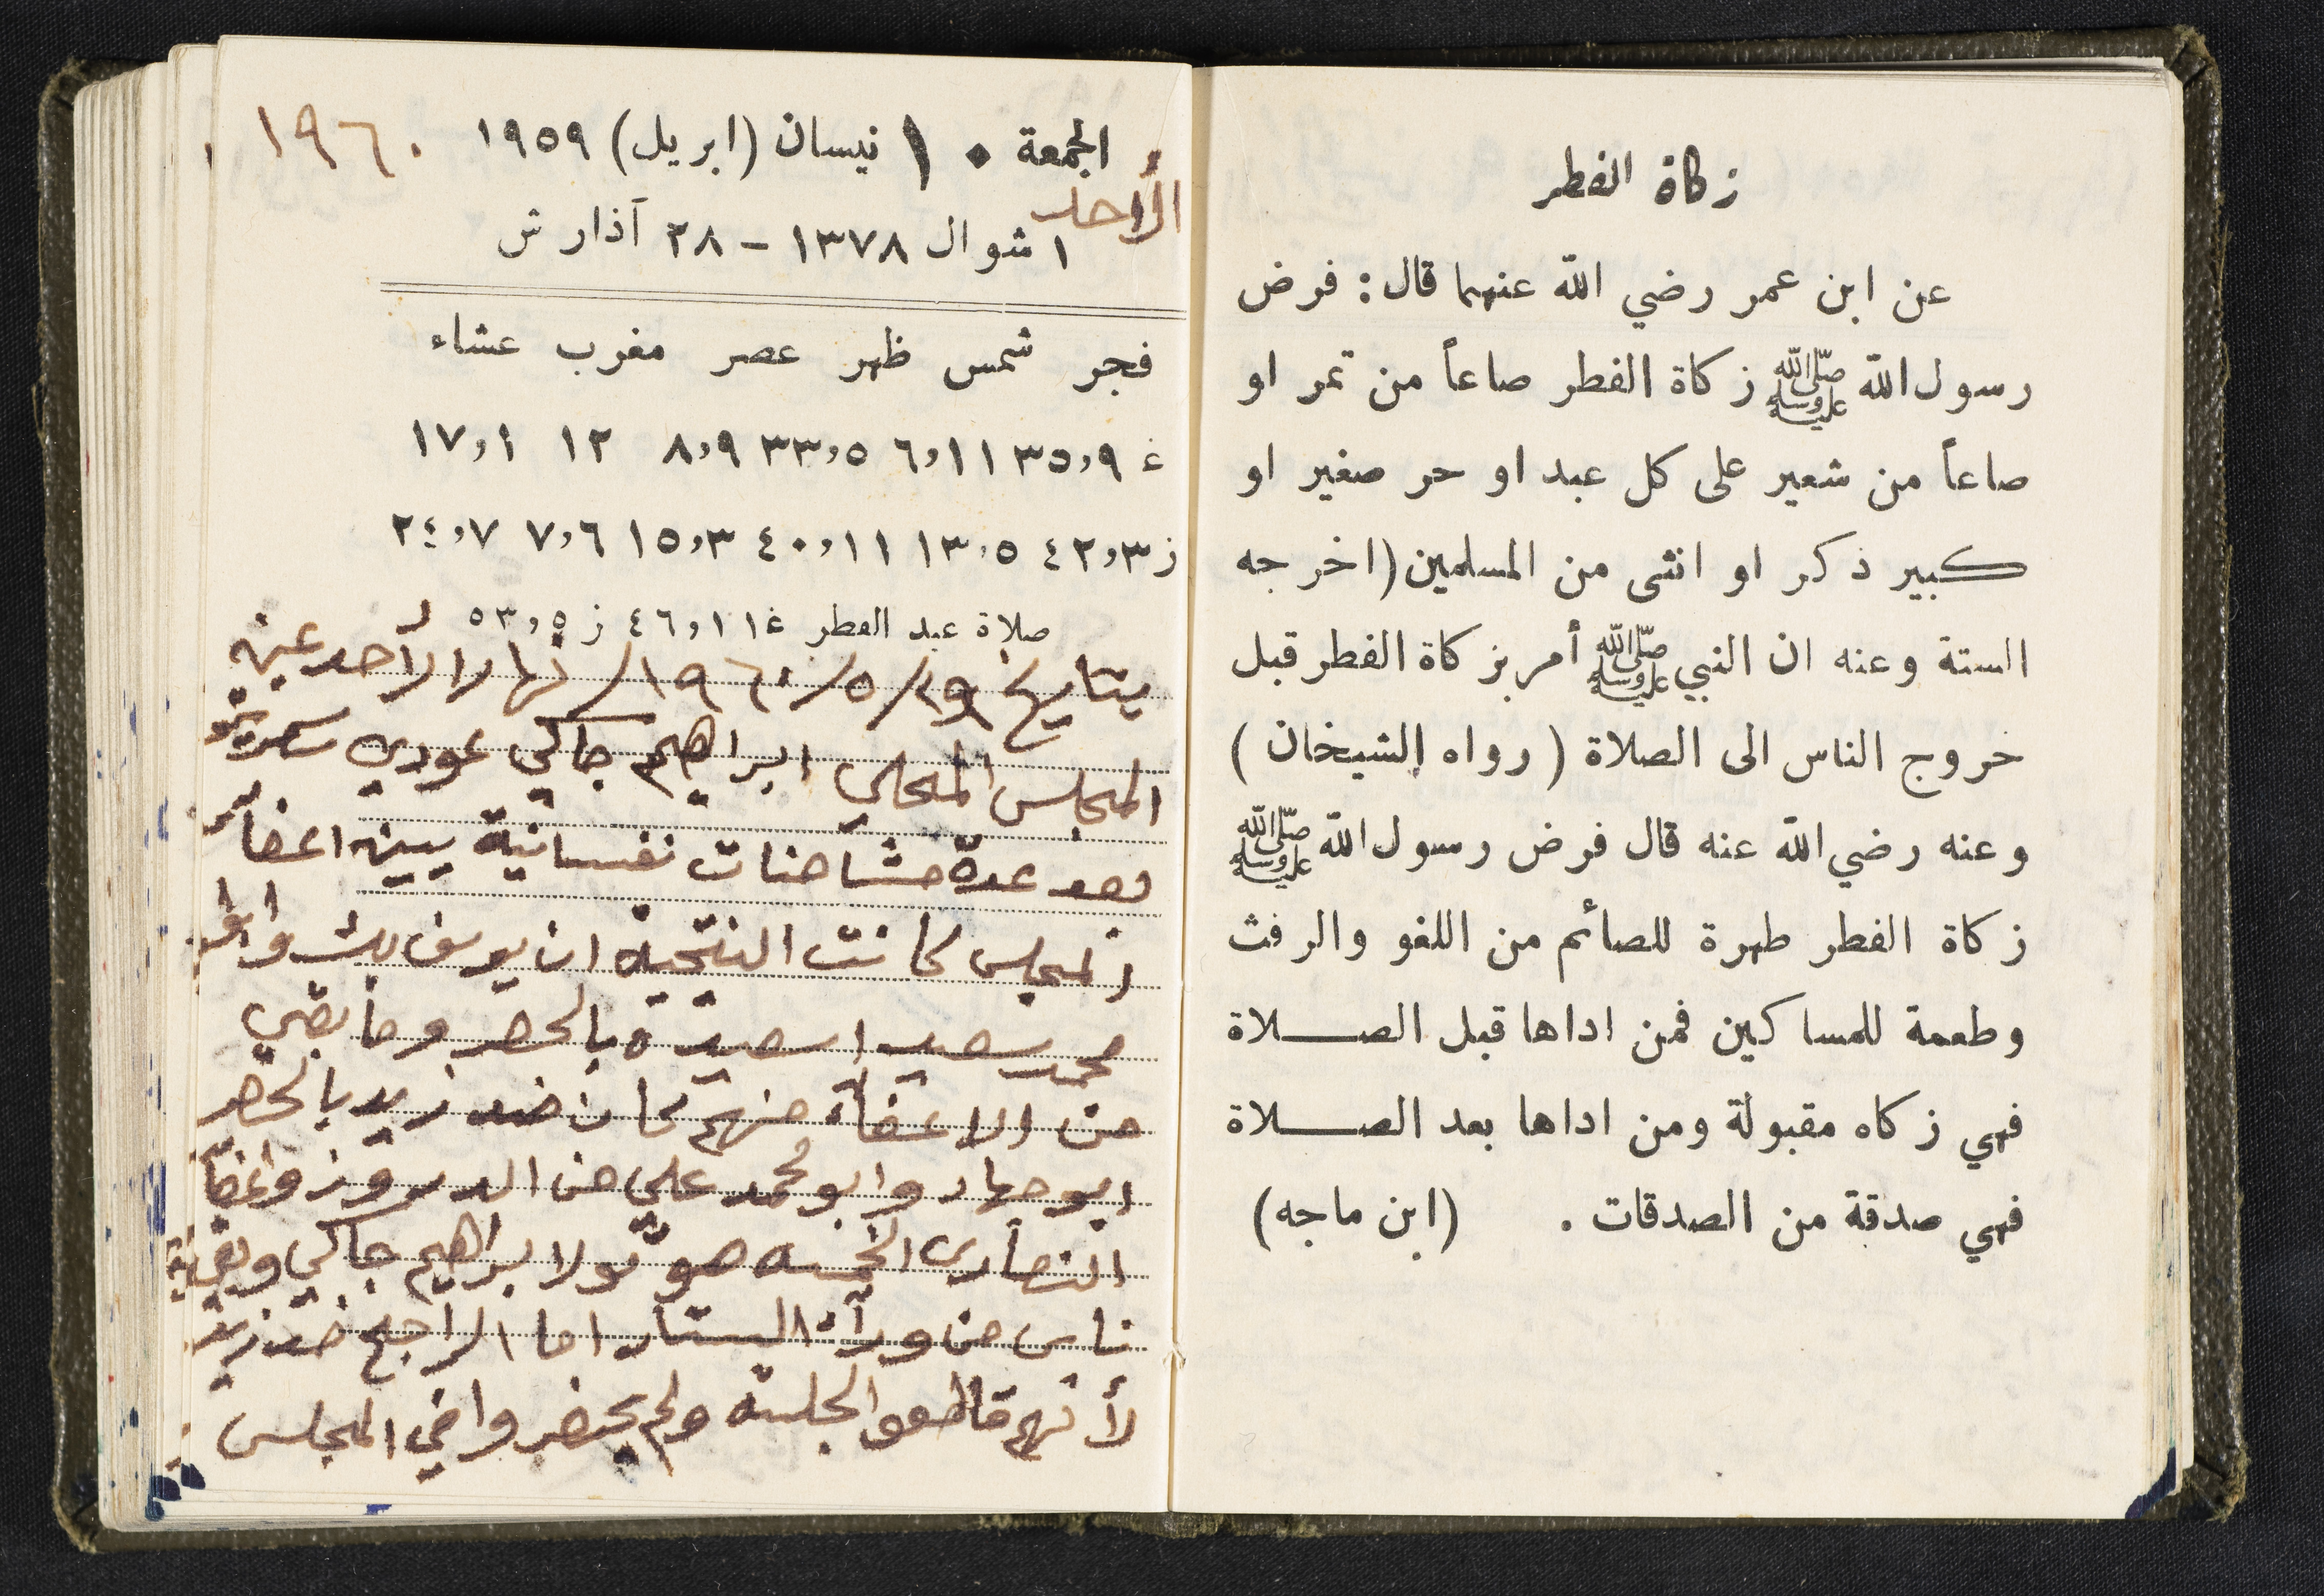 زكاة الفطر
عن ابن عمر رضي الله عنهما قال : فرض
رسول الله ﷺ زكاة الفطر صاعاً من تمر او
صاعاً من شعير على كل عبد او حر صغير او
كبير ذكر او انثى من المسلمين (اخرجه
الستة وعنه ان النبي ﷺ أمر بزكاة الفطر قبل
خروج الناس الى الصلاة ( رواه الشيخان )
وعنه رضي الله عنه قال فرض رسول الله ﷺ
زكاة الفطر طهرة للصائم من اللغو والرفث
وطعمة للمساكين فمن اداها قبل الصـلاة
فهي زكاه مقبولة ومن اداها بعد الصـلاة
فهي صدقة من الصدقات . (ابن ماجه)
الجمعة ١٠ نيسان (ابريل) ١٩٥٩ ١٩٦٠
الأحد
١ شوال ١٣٧٨ - ٢٨ آذار ش
فجر شمس ظهر عصر مغرب عشاء
غ ٣٥,٩ ٦,١١ ٣٣,٥ ٨,٩ ١٢ ١٧,١
ز ٤٢,٣ ١٣,٥ ٤٠,١١ ١٥,٣ ٧,٦ ٢٤,٧
صلاة عيد الفطر غ ٤٦,١١ ز ٥٣,٥
بتاريخ ١٩٦٠/٥/٢٩ نهار الأحد عين
المجلس المحلي ابراهيم جاكي عودي سكرتير
بعد عدة مشاحنات نفسانية بين اعضاء
المجلس كانت النتيجة ان يوسف بك وابو
محمد سعيد اسعيده بالحصر وما بقي
من الاعضاء منهم كان ضد زيد بالحصر
ابو جهاد وابو محمد علي من الدروز واعضاء
النصارى الخمسه صوتوا لابراهيم جاكي وبقية
ناس من ورآء الستار اما الراجح ضد زيد
لأنهم قاطعوا الجلسة ولم يحضروا في المجلس